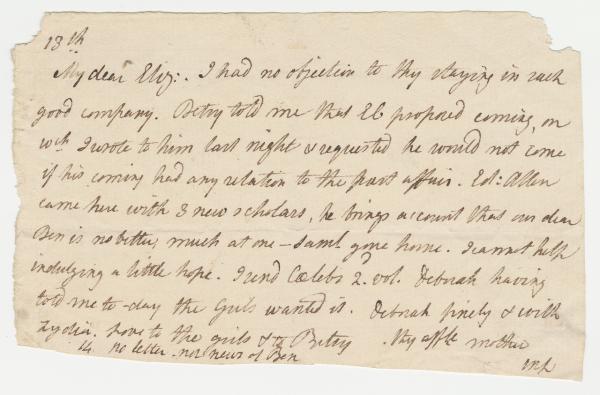 18th
My dear Eliz:. I had no objection to thy staying in such
good company. Betsy told me that Eb proposed coming, on
wch I wrote to him last night & requested he would not come
if his coming had any relation to the past affair. Ed: Allen
came here with 3 new scholars, he brings account that our dear
Ben is no better, much at one – Saml gone home. I cannot help
indulging a little hope. I send Cœlebs 2d vol. Deborah having
told me to-day the Girls wanted it. Deborah finely & with
Lydia. Love to the girls & to Betsy thy affte mother
14 no letter nor news of Ben